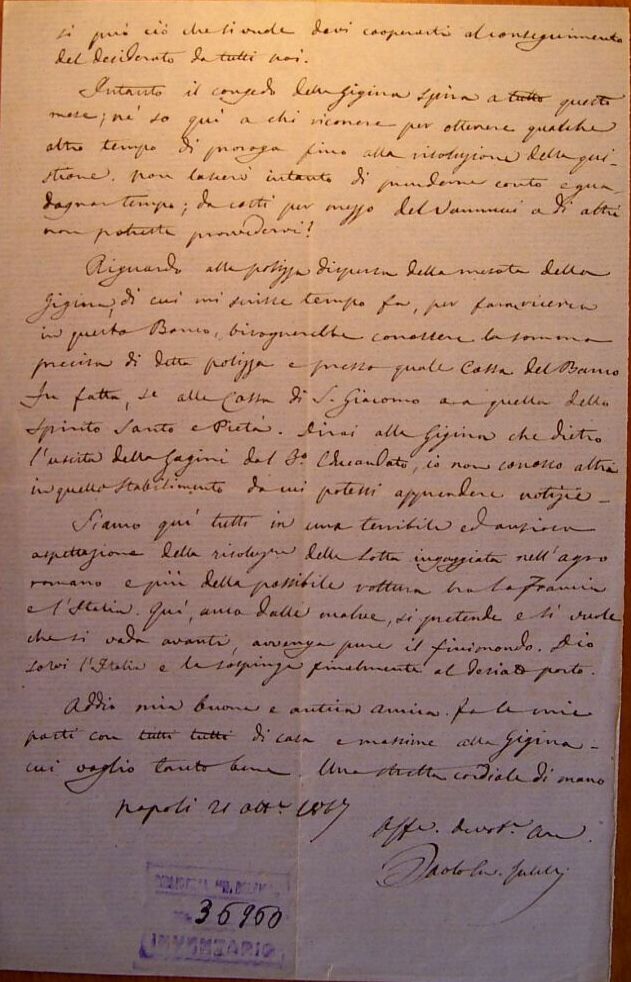 si può ciò che si vuole devi cooperarti al conseguimento
del desiderato da tutti noi.
Intanto il congedo della Gigina spira a tutto questo
mese; nè so quì a chi ricorrere per ottenere qualche
altro tempo di proroga fino alla risoluzione della qui-
stione. Non lascerò intanto di prenderne conto e gua-
dagnar tempo; da costì per mezzo del Vannucci o di altri
non potreste provvedervi?
Riguardo alla polizza dispersa della mesata della
Gigina, di cui mi scrisse tempo fa, per farne ricerca
in questo Banco, bisognerebbe conoscere la somma
precisa di detta polizza e presso quale Cassa del Banco
fu fatta, se alla Cassa di S. Giacomo o a quella dello
Spirito Santo e Pietà. Dirai alla Gigina che dietro
l'uscita della Gagini dal 3.º Educandato, io non conosco altri
in quello stabilimento da cui potessi apprendere notizie –
Siamo quì tutti in una terribile ed ansiosa
aspettazione della risoluzione della lotta ingaggiata nell'agro
romano e più della possibile rottura tra la Francia
e l'Italia. Quì, anco dalle malve, si pretende e si vuole
che si vada avanti, avvenga pure il finimondo. Dio
salvi l'Italia e la sospinga finalmente al desiato porto.
Addio mia buona e antica amica. Fa le mie
parti con tutti tutti di casa e massime alla Gigina –
cui voglio tanto bene. Una stretta cordiale di mano
Napoli 21 ott.e 1867
Aff. devot.
Paolo
36960
INVENTARIO